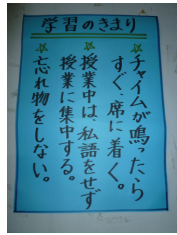 学習のきまり
チャイムが鳴ったら
すぐ、席に着く。
授業中は、私語をせず
授業に集中する。
忘れ物をしない。